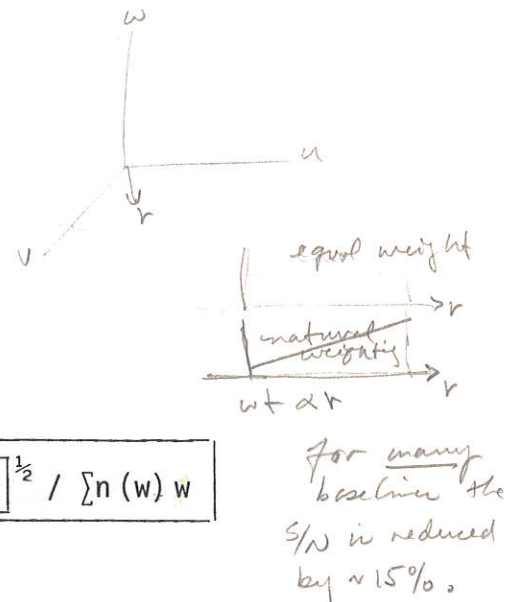 w
u
r
v
equal weight
r
natural
weighting
r
wt ∝ r
]^½ / ∑n (w) w
for many
baselines the
S/N is reduced
by ~15%.